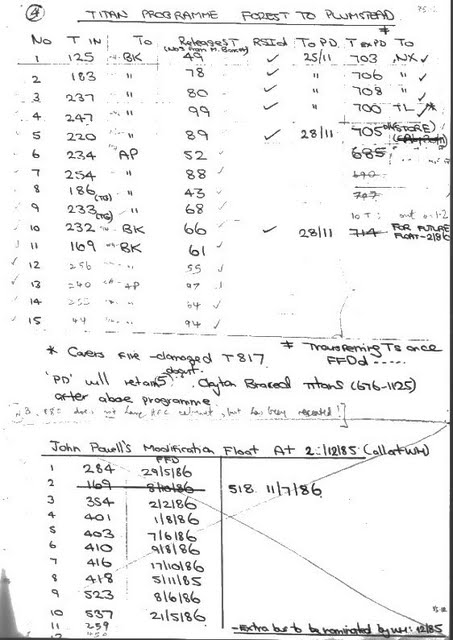 4
TITAN PROGRAMME FOREST TO PLUMSTEAD
No T IN To Releases T RSId To PD T exPD To
(NOS from M. Barnes)
1 125 BK 49 ✓ 25/11 703 NX ✓
2 183 " 78 ✓ " 706 " ✓
3 237 " 80 ✓ " 708 " ✓
4 247 " 99 ✓ " 700 TL *
5 220 " 89 ✓ 28/11 705 (STORE)
6 234 AP 52 685
7 254 " 88 690
8 186 (TG) " 43
9 233 (TG) " 68
10 232 BK 66 ✓ 28/11 714 FOR FUTURE FLOAT - 2/86
11 169 BK 61
12 256 " 55
13 240 AP 97
14 " 64
15 44 " 94
* Covers fire-damaged T817
Transferring Ts once FFDd
'PD' will retain 5 Clayton Braked Titans (676-1125)
after above programme
John Powell's Modification Float At 2/12/85 (all at WH)
FFD
1 284 29/5/86
2 169 8/10/86 518 11/7/86
3 354 2/2/86
4 401 1/8/86
5 403 7/6/86
6 410 9/8/86
7 416 17/10/86
8 418 5/11/85
9 523 8/6/86
10 537 21/5/86
11 259
12
- Extra bus to be nominated by WH: 12/85